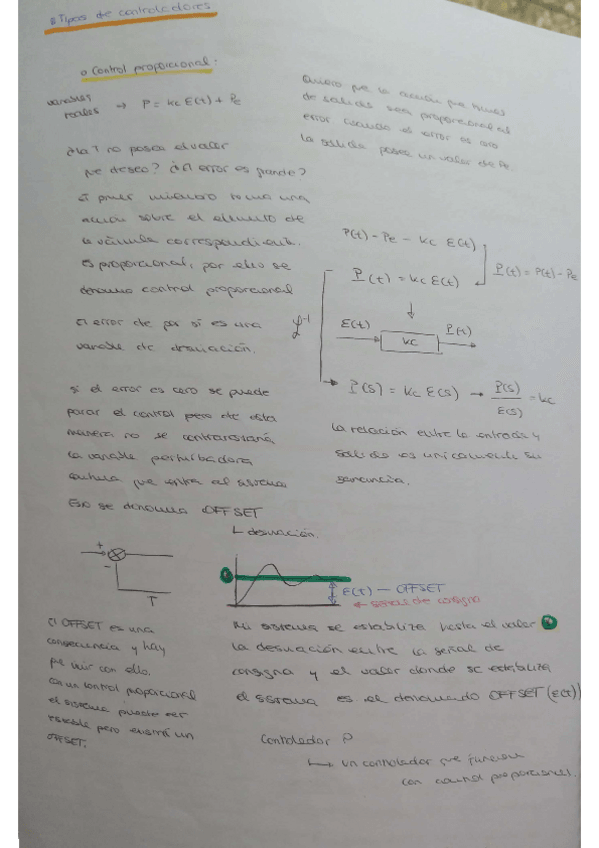 Tipos de controladores
o Control proporcional:
variables
reales → P = Kc E(t) + Pe
Quiero que la acción que tomas
de salida sea proporcional al
error cuando el error es cero
la salida posea un valor de Pe
¿La T no posea el valor
que deseo? ¿El error es grande?
acción sobre el elemento de
la válvula correspondiente.
Es proporcional, por ello se
denomina control proporcional
El error de por si es una
variable de desviación.
P(t) - Pe = Kc E(t)
P(t) = Kc E(t)
P(t) = P(t) - Pe
E(t)
Kc
P(t)
P(s) = Kc E(s) → P(s)/E(s) = Kc
La relación entre la entrada y
salida es unicamente su
ganancia.
si el error es cero se puede
parar el control pero de esta
manera no se contrarrestaría
la variable perturbadora
continua que entra al sistema
Eso se denomina OFFSET
↳ desviación.
+
-
T
E(t) — OFFSET
← señal de consigna
El OFFSET es una
consecuencia y hay
que vivir con ello.
Con un control proporcional
el sistema puede ser
estable pero existirá un
OFFSET.
Mi sistema se estabiliza hasta el valor
la desviación entre la señal de
consigna y el valor donde se estabiliza
el sistema es el denominado OFFSET (E(t))
Controlador P
↳ un controlador que funciona
con control proporcional.